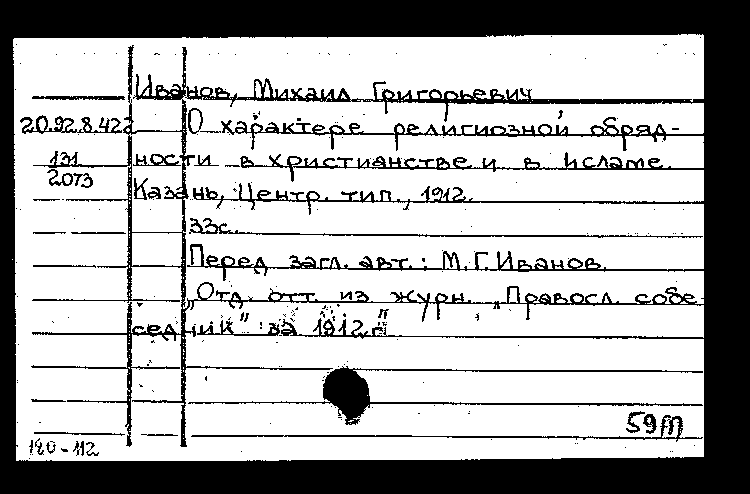 Иванов, Михаил Григорьевич
20.92.8.422 О характере религиозной обряд-
131 ности в христианстве и в исламе.
2073 Казань, Центр. тип., 1912.
33с.
Перед загл. авт.: М.Г.Иванов.
„Отд. отт. из журн. „Правосл. собе-
седник" за 1912 г."
59М
180-112